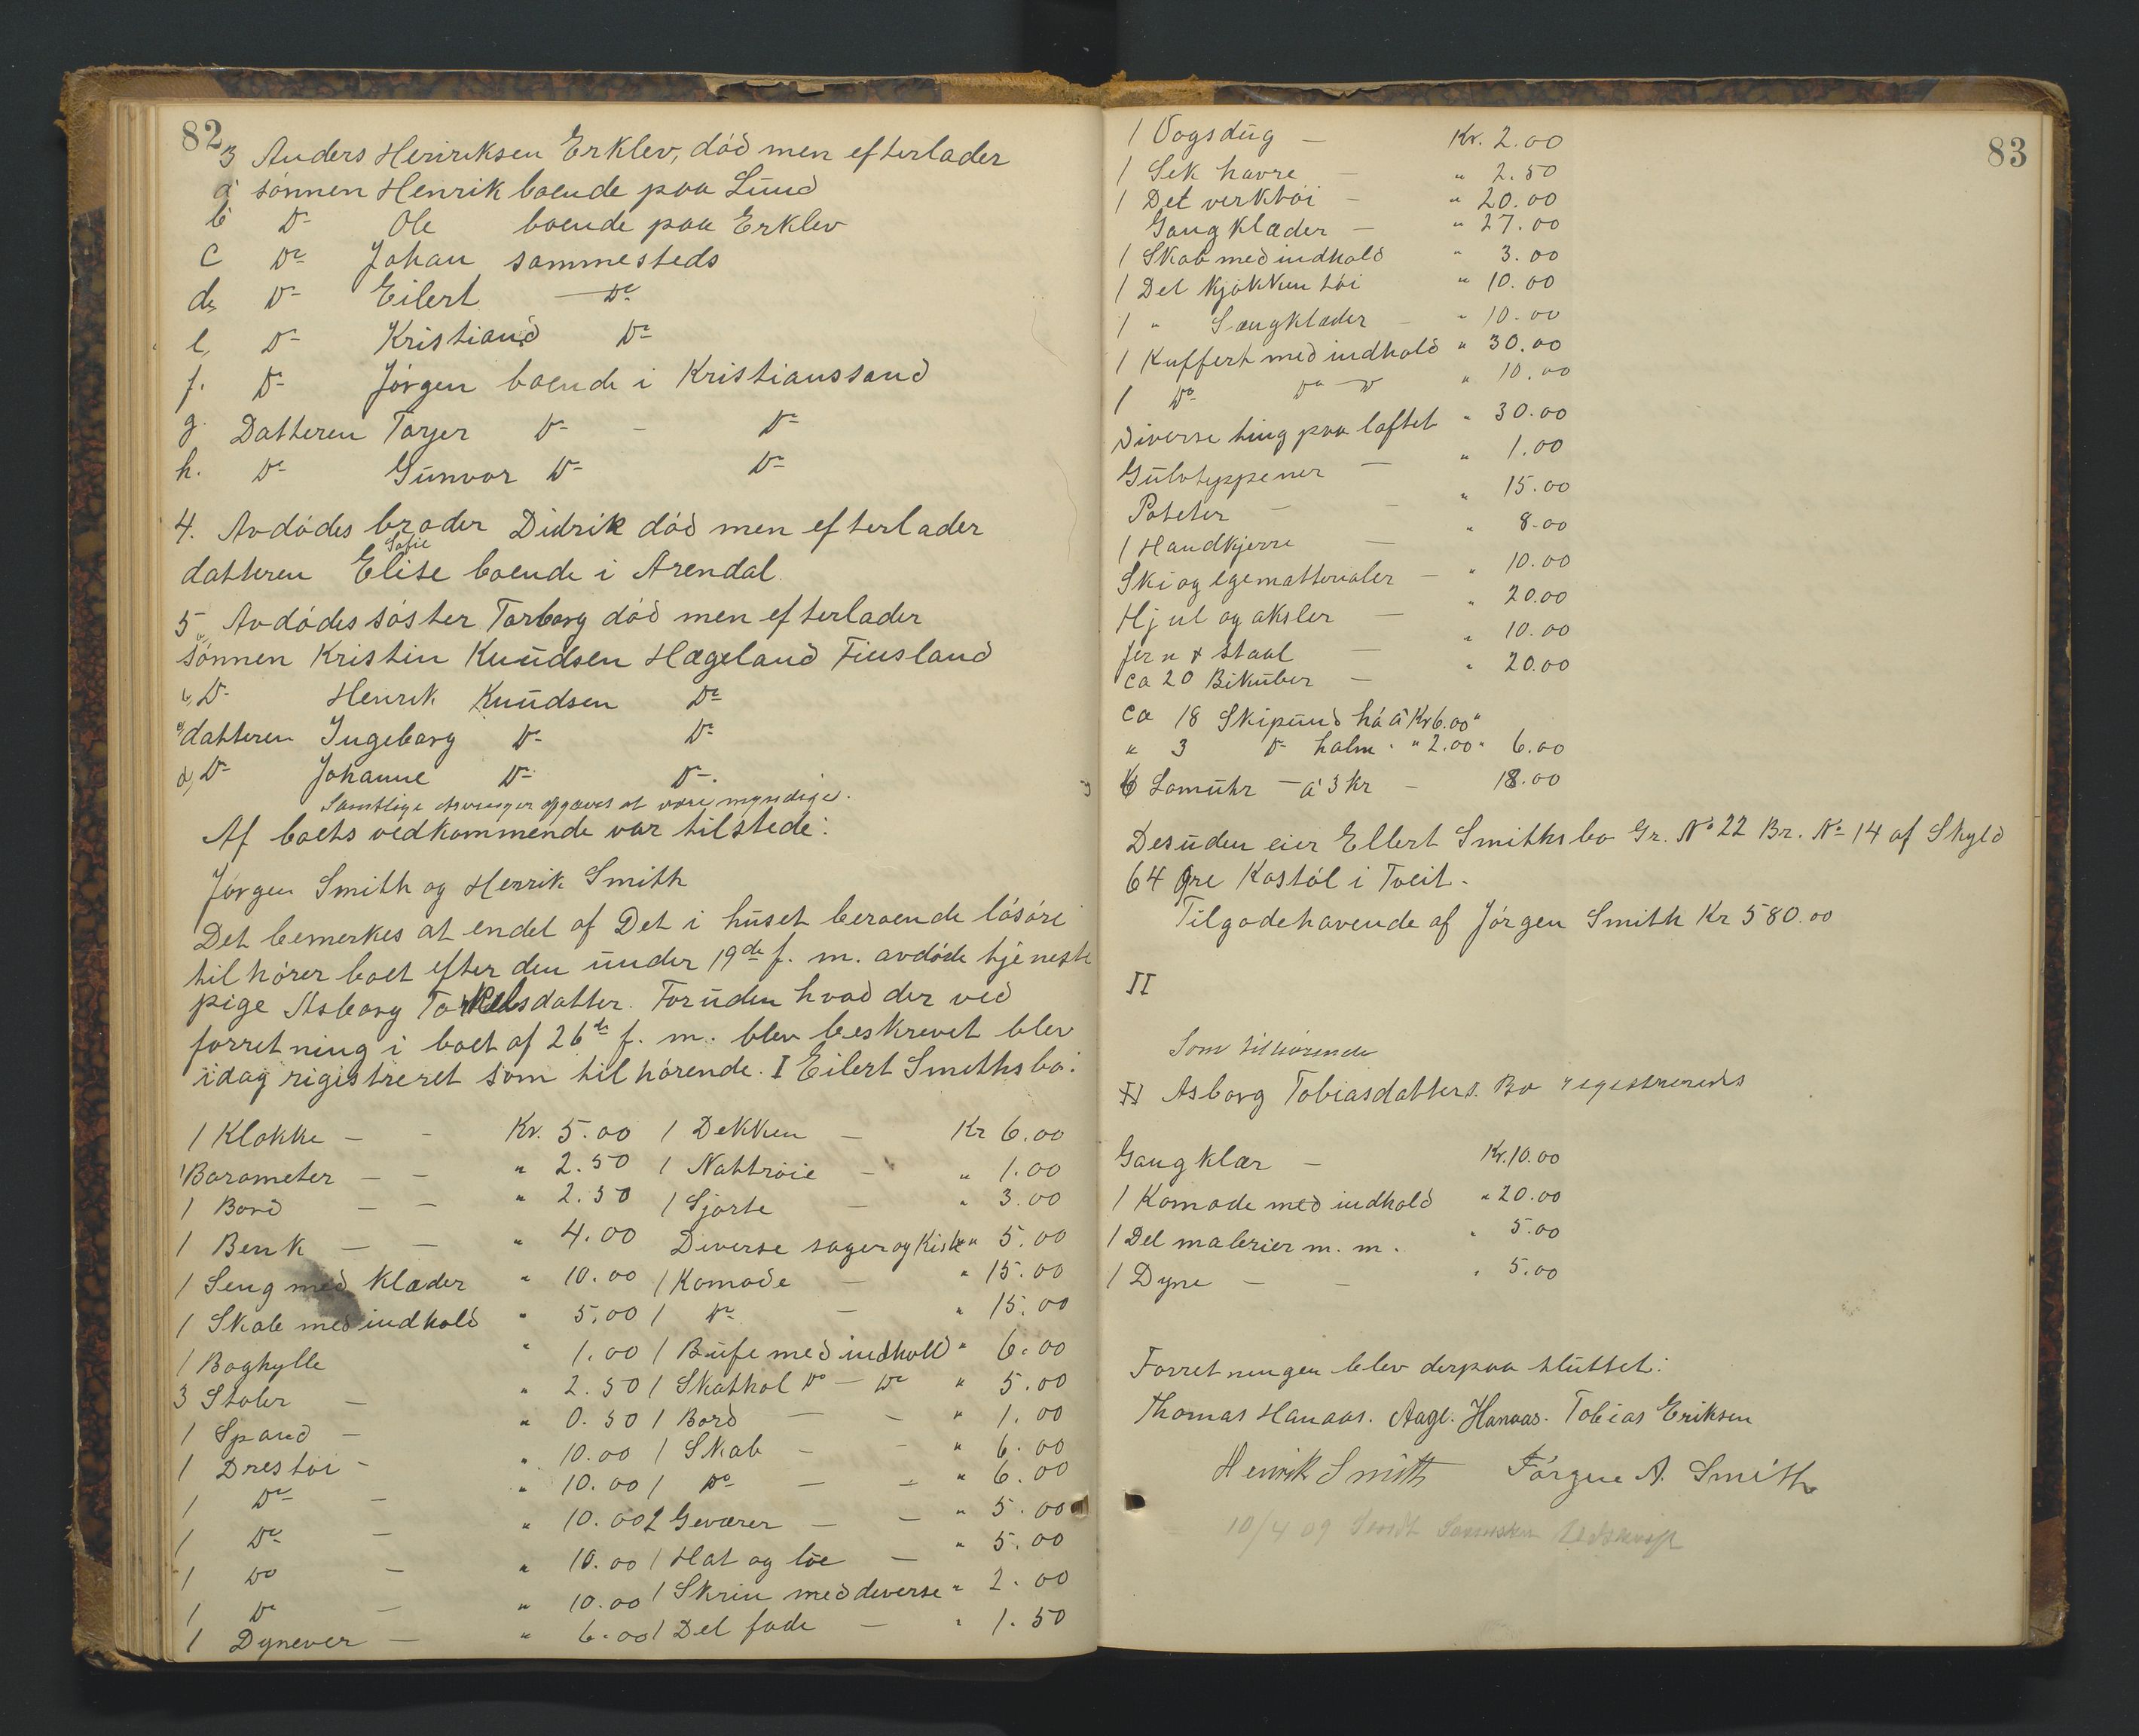 82
3 Anders Henriksen Erklev, död men efterlader
a sönnen Henrik boende paa Lund
b Do Ole boende paa Erklev
c Do Johan sammesteds
d, Do Eilert — Do
e, Do Kristian Do
f. Do Jörgen boende i Kristianssand
g. Datteren Tarjer Do - Do
h. Do Gunvor Do Do
4. Avdödes broder Didrik död men efterlader
Sofie
datteren Elise boende i Arendal.
5, Avdödes söster Torborg död men efterlader
sönnen Kristin Knudsen Hægeland Finsland
b, Do Henrik Knudsen Do
c, datteren Ingeborg Do Do
d, Do Johanne Do Do.
Samtlige arvinger opgaves at være myndige.
Af boets vedkommende var tilstede:
Jörgen Smith og Henrik Smith
Det bemerkes at endel af Det i huset beroende lösöre
tilhörer boet efter den under 19de f. m. avdöde tjeneste
pige Asborg Torkelsdatter. Foruden hvad der ved
forretning i boet af 26de f. m. blev beskrevet blev
idag rigistreret som tilhörende. I Eilert Smithsbo:
1 Klokke — - Kr. 5.00 1 Dekken — Kr 6.00
1 Barometer — - " 2.50 1 Nattröie - " 1.00
1 Bord — - " 2.50 1 Sjorte — " 3.00
1 Benk — — " 4.00 Diverse sager og Kiste " 5.00
1 Seng med klæder " 10.00 1 Komode — " 15.00
1 Skab med indhold " 5.00 1 Do — " 15.00
1 Boghylle " 1.00 1 Bufe med indhold " 6.00
3 Stoler — " 2.50 1 Skathol Do — Do " 5.00
1 Spand — " 0.50 1 Bord — - " 1.00
1 Drestöi - " 10.00 1 Skab - - " 6.00
1 Do - " 10.00 1 Do — - " 6.00
1 Do - " 10.00 2 Geværer — - " 5.00
1 Do - " 10.00 1 Hat og lue — " 5.00
1 Do - " 10.00 1 Skrin med deverse " 2.00
1 Dynever — " 6.00 1 Del fade — " 1.50
83
1 Vogsdug — Kr. 2.00
1 Sek havre - " 2.50
1 Del verktöi - " 20.00
Gangklæder — " 27.00
1 Skab med indhold " 3.00
1 Del kjökkentöi " 10.00
1 " Sængklæder - " 10.00
1 Kuffert med indhold " 30.00
1 Do Do — Do " 10.00
Diverse ting paa loftet " 30.00
Gulvteppener — " 1.00
Poteter - - " 15.00
1 Handkjerre — " 8.00
Ski og egematterialer — " 10.00
Hjul og aksler — " 20.00
Jern & staal — " 10.00
ca 20 Bikuber — " 20.00
ca 18 Skipund hö à Kr 6.00 "
" 3 Do halm " " 2.00 " 6.00
6 Lamuhr — à 3 kr - 18.00
Desuden eier Ellert Smiths bo Gr. No 22 Br. No 14 af Skyld
64 Öre Kostöl i Tveit.
Tilgodehavende af Jörgen Smith Kr 580.00
II
Som tilhörende
II Asborg Tobiasdatters. Bo registreredes
Gangklær — Kr. 10.00
1 Komode med indhold " 20.00
1 Del malerier m. m. " 5.00
1 Dyne — - " 5.00
Forretningen blev derpaa sluttet:
Thomas Hanaas. Aage. Hanaas. Tobias Eriksen
Henrik Smith Jörgen A. Smith
10/4 09 Sendt